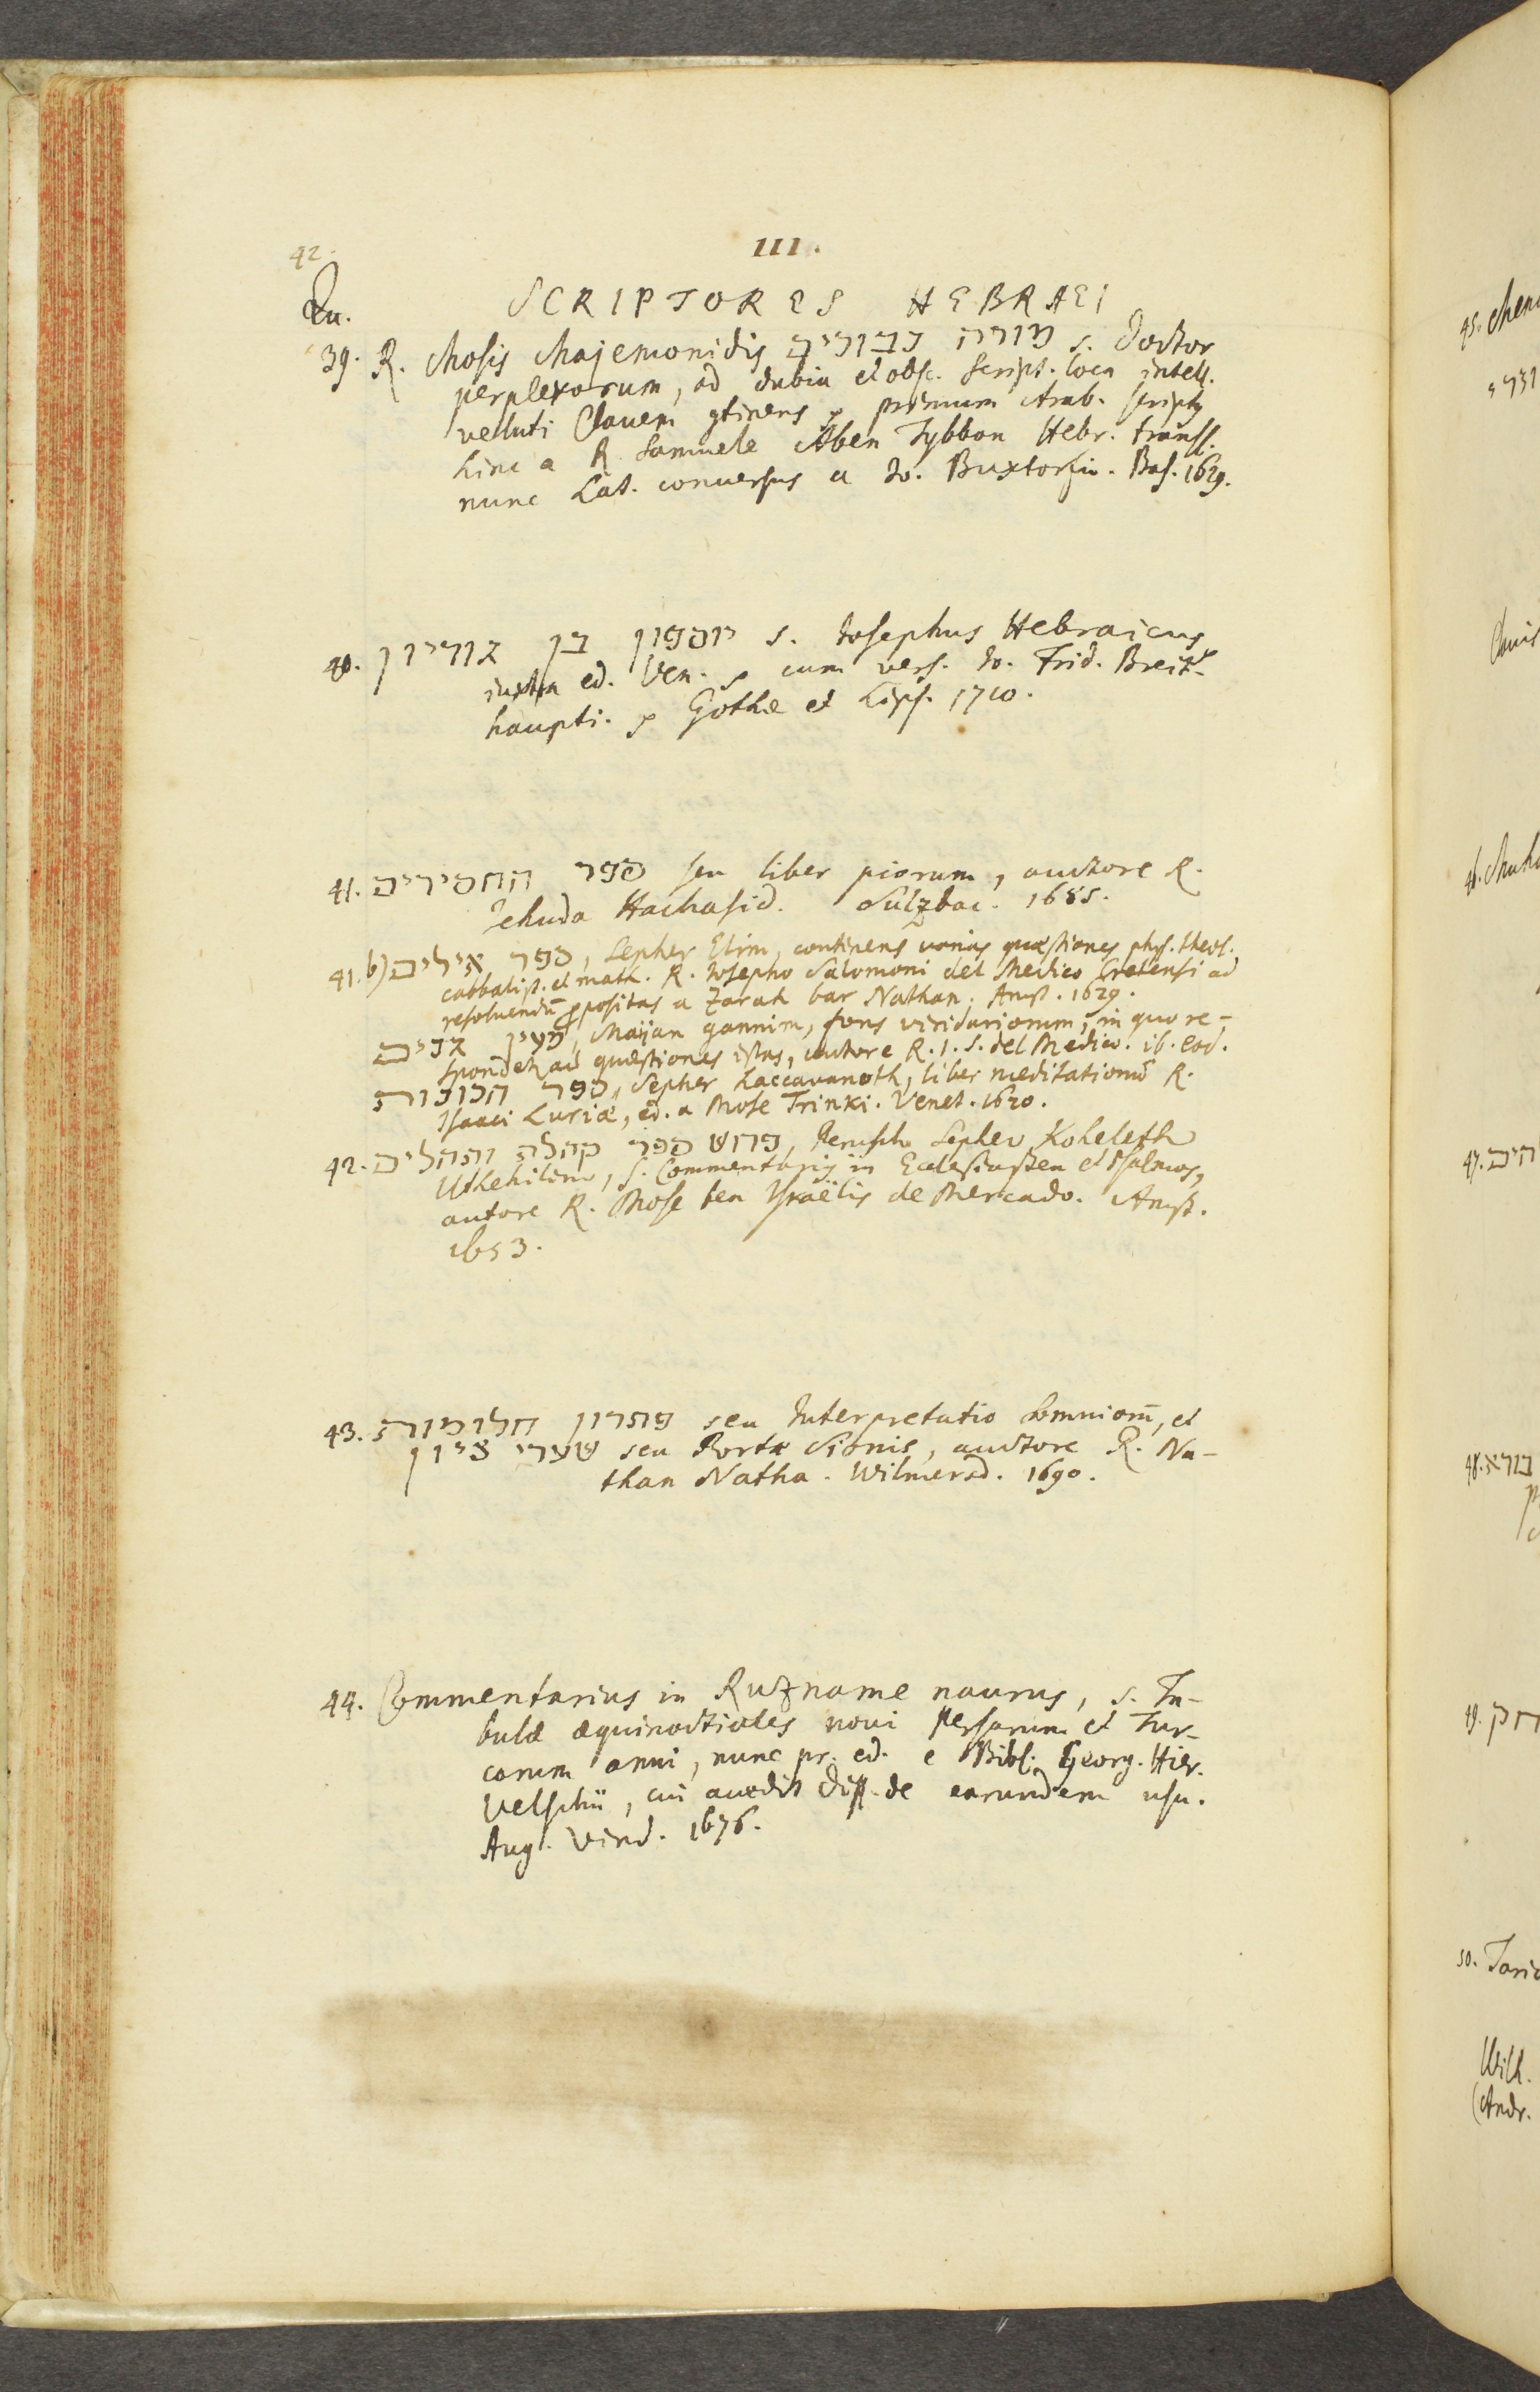 42.
III.
Qu.
SCRIPTORES HEBRAEI
39. R. Mosis Majemonidis מורה נבוכים s. Doctor
perplexorum, ad dubia et obsc. Script. loca intell.
velluti Clavem continens primum Arab. scriptus
hinc a R. Samuele Aben Tybbon Hebr. transl.
nunc Lat. conuersus a Jo. Buxtorfio. Bas. 1629.
40. יוסיפון בן גוריון s. Josephus Hebraicus
iuxta ed. Ven. cum vers. Jo. Frid. Breit-
haupti. Gothæ et Lips. 1710.
41. ספר החסידים seu liber piorum, auctore R.
Jehuda Hachasid. Sulzbac. 1685.
41.b) ספר אילים, Sepher Elim, continens varias quæstiones phys. theol.
cabbalist. et math. R. Josepho Salomoni del Medico Cretensi ad
resoluendũ propositas a Zarah bar Nathan. Amst. 1629.
מעין גנים, Maijan gannim, fons viridariorum, in quo re-
spondet ad quæstiones istas, autore R. I. S. del Medico. ib. eod.
ספר הכונות, Sepher haccavanoth, liber meditationũ R.
Isaaci Luriæ, ed. a Mose Trinki. Venet. 1620.
42. פרוש ספר קהלה ותהלים, Perusch Sepher Koheleth
Uthehilim, s. Commentarius in Ecclesiasten et Psalmos,
autore R. Mose ben Israëlis de Mercado. Amst.
1653.
43. פתרון חלומות seu Interpretatio Somniorũ, et
שערי ציון seu Portæ Sionis, auctore R. Na-
than Natha. Wilmersd. 1690.
44. Commentarius in Ruzname naurus, s. Ta-
bulæ æquinoctiales noui Persarum et Tur-
carum anni, nunc pr. ed. e Bibl. Georg. Hier.
Velschii, cui accedit Diss. de earundem usu.
Aug. Vind. 1676.
45.
46.
47.
48.
49.
50.
Wilh.
(Andr.